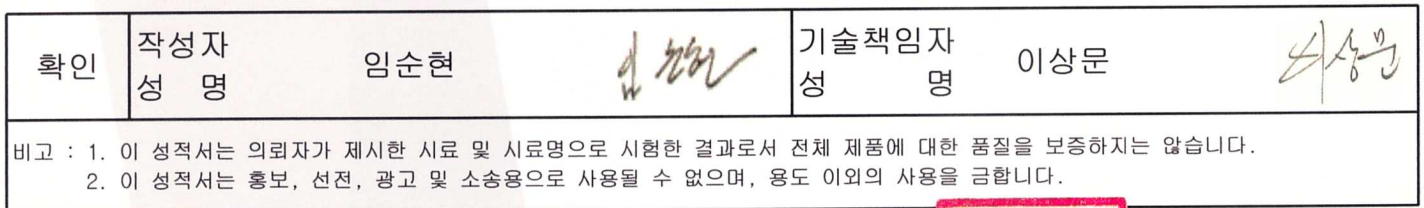 확인 작성자 성 명 임순현 임순현 기술책임자 성 명 이상문 이상문
비고 : 1. 이 성적서는 의뢰자가 제시한 시료 및 시료명으로 시험한 결과로서 전체 제품에 대한 품질을 보증하지는 않습니다.
2. 이 성적서는 홍보, 선전, 광고 및 소송용으로 사용될 수 없으며, 용도 이외의 사용을 금합니다.